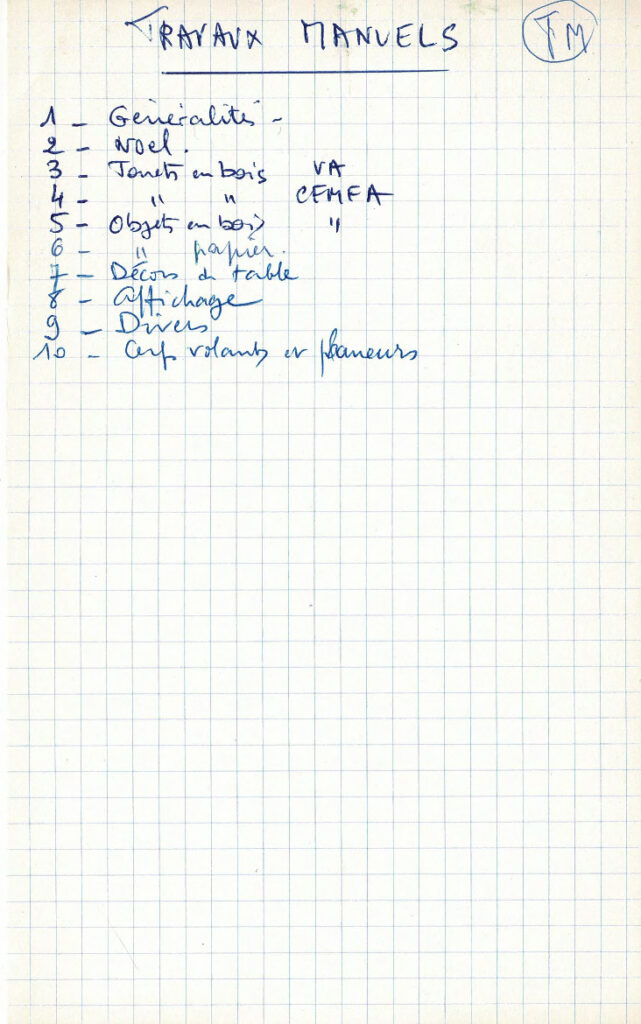 TRAVAUX MANUELS TM
1 - Généralités -
2 - Noel.
3 - Jouets en bois VA
4 - " " CEMEA
5 - Objets en bois "
6 - " papier.
7 - Décors de table
8 - Affichage
9 - Divers
10 - Cerfs volants et planeurs